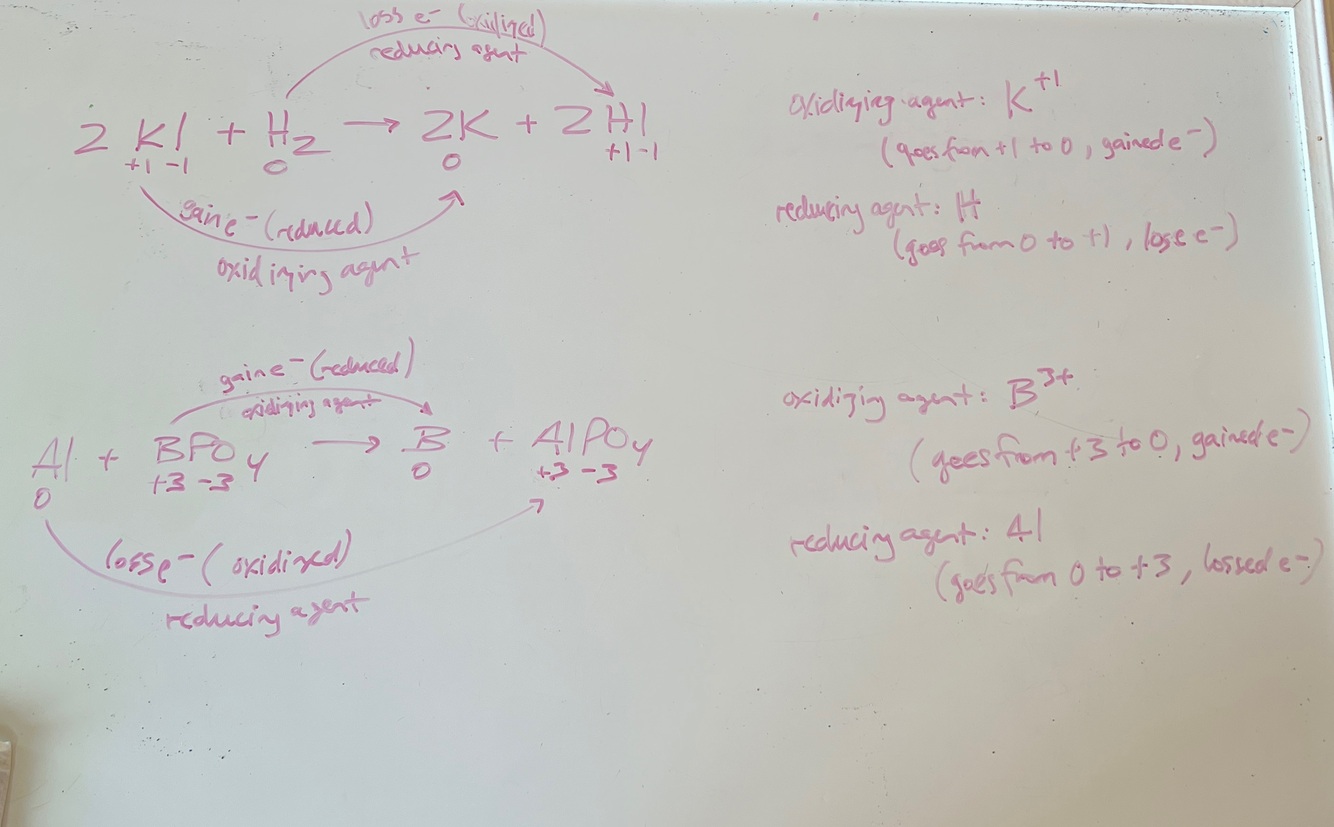 loss e⁻ (oxidized)
reducing agent
2 KI + H₂ → 2K + 2 HI
+1 -1 0 0 +1 -1
gain e⁻ (reduced)
oxidizing agent
oxidizing agent: K⁺¹
(goes from +1 to 0, gained e⁻)
reducing agent: H
(goes from 0 to +1, lose e⁻)
gain e⁻ (reduced)
oxidizing agent
Al + BPO₄ → B + AlPO₄
0 +3 -3 0 +3 -3
loss e⁻ (oxidized)
reducing agent
oxidizing agent: B³⁺
(goes from +3 to 0, gained e⁻)
reducing agent: Al
(goes from 0 to +3, lossed e⁻)